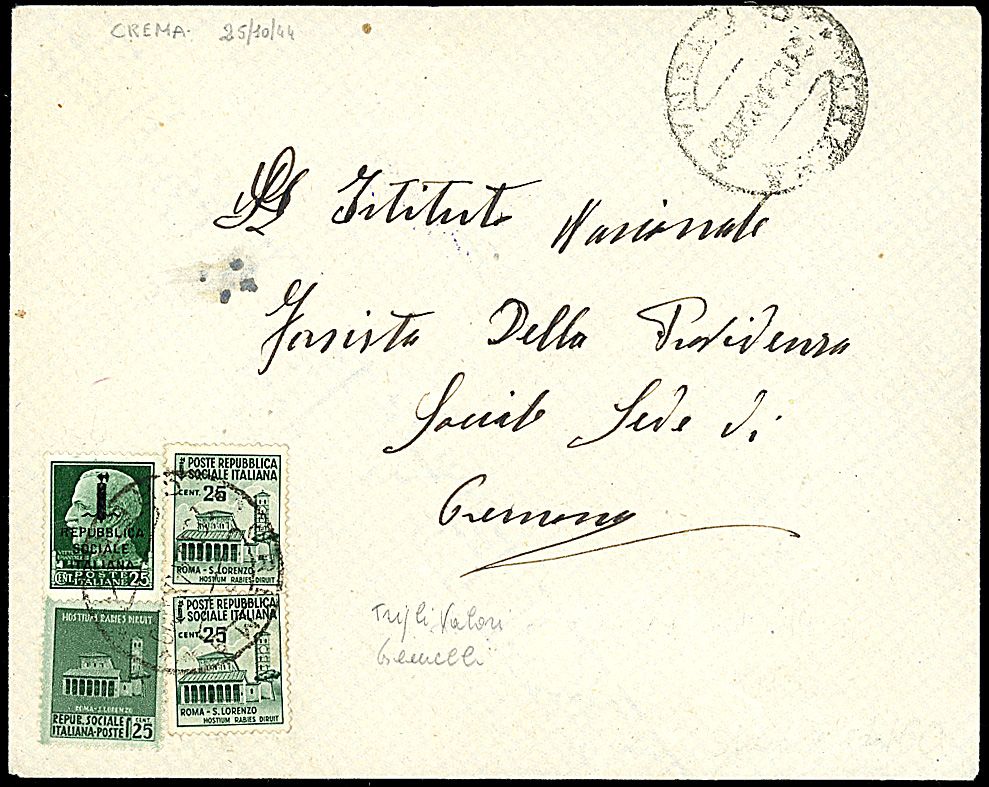 CREMA. 25/10/44
Istituto Nazionale
Fascista Della Providenza
Sociale Sede di
Cremona
REPUBBLICA
SOCIALE
ITALIANA
POSTE
ITALIANE
CENT. 25
POSTE REPUBBLICA
SOCIALE ITALIANA
CENT. 25
ROMA - S. LORENZO
HOSTIUM RABIES DIRUIT
HOSTIUM RABIES DIRUIT
ROMA - S. LORENZO
REPUB. SOCIALE
ITALIANA - POSTE
CENT. 25
POSTE REPUBBLICA
SOCIALE ITALIANA
CENT. 25
ROMA - S. LORENZO
HOSTIUM RABIES DIRUIT
Valori
Gemelli